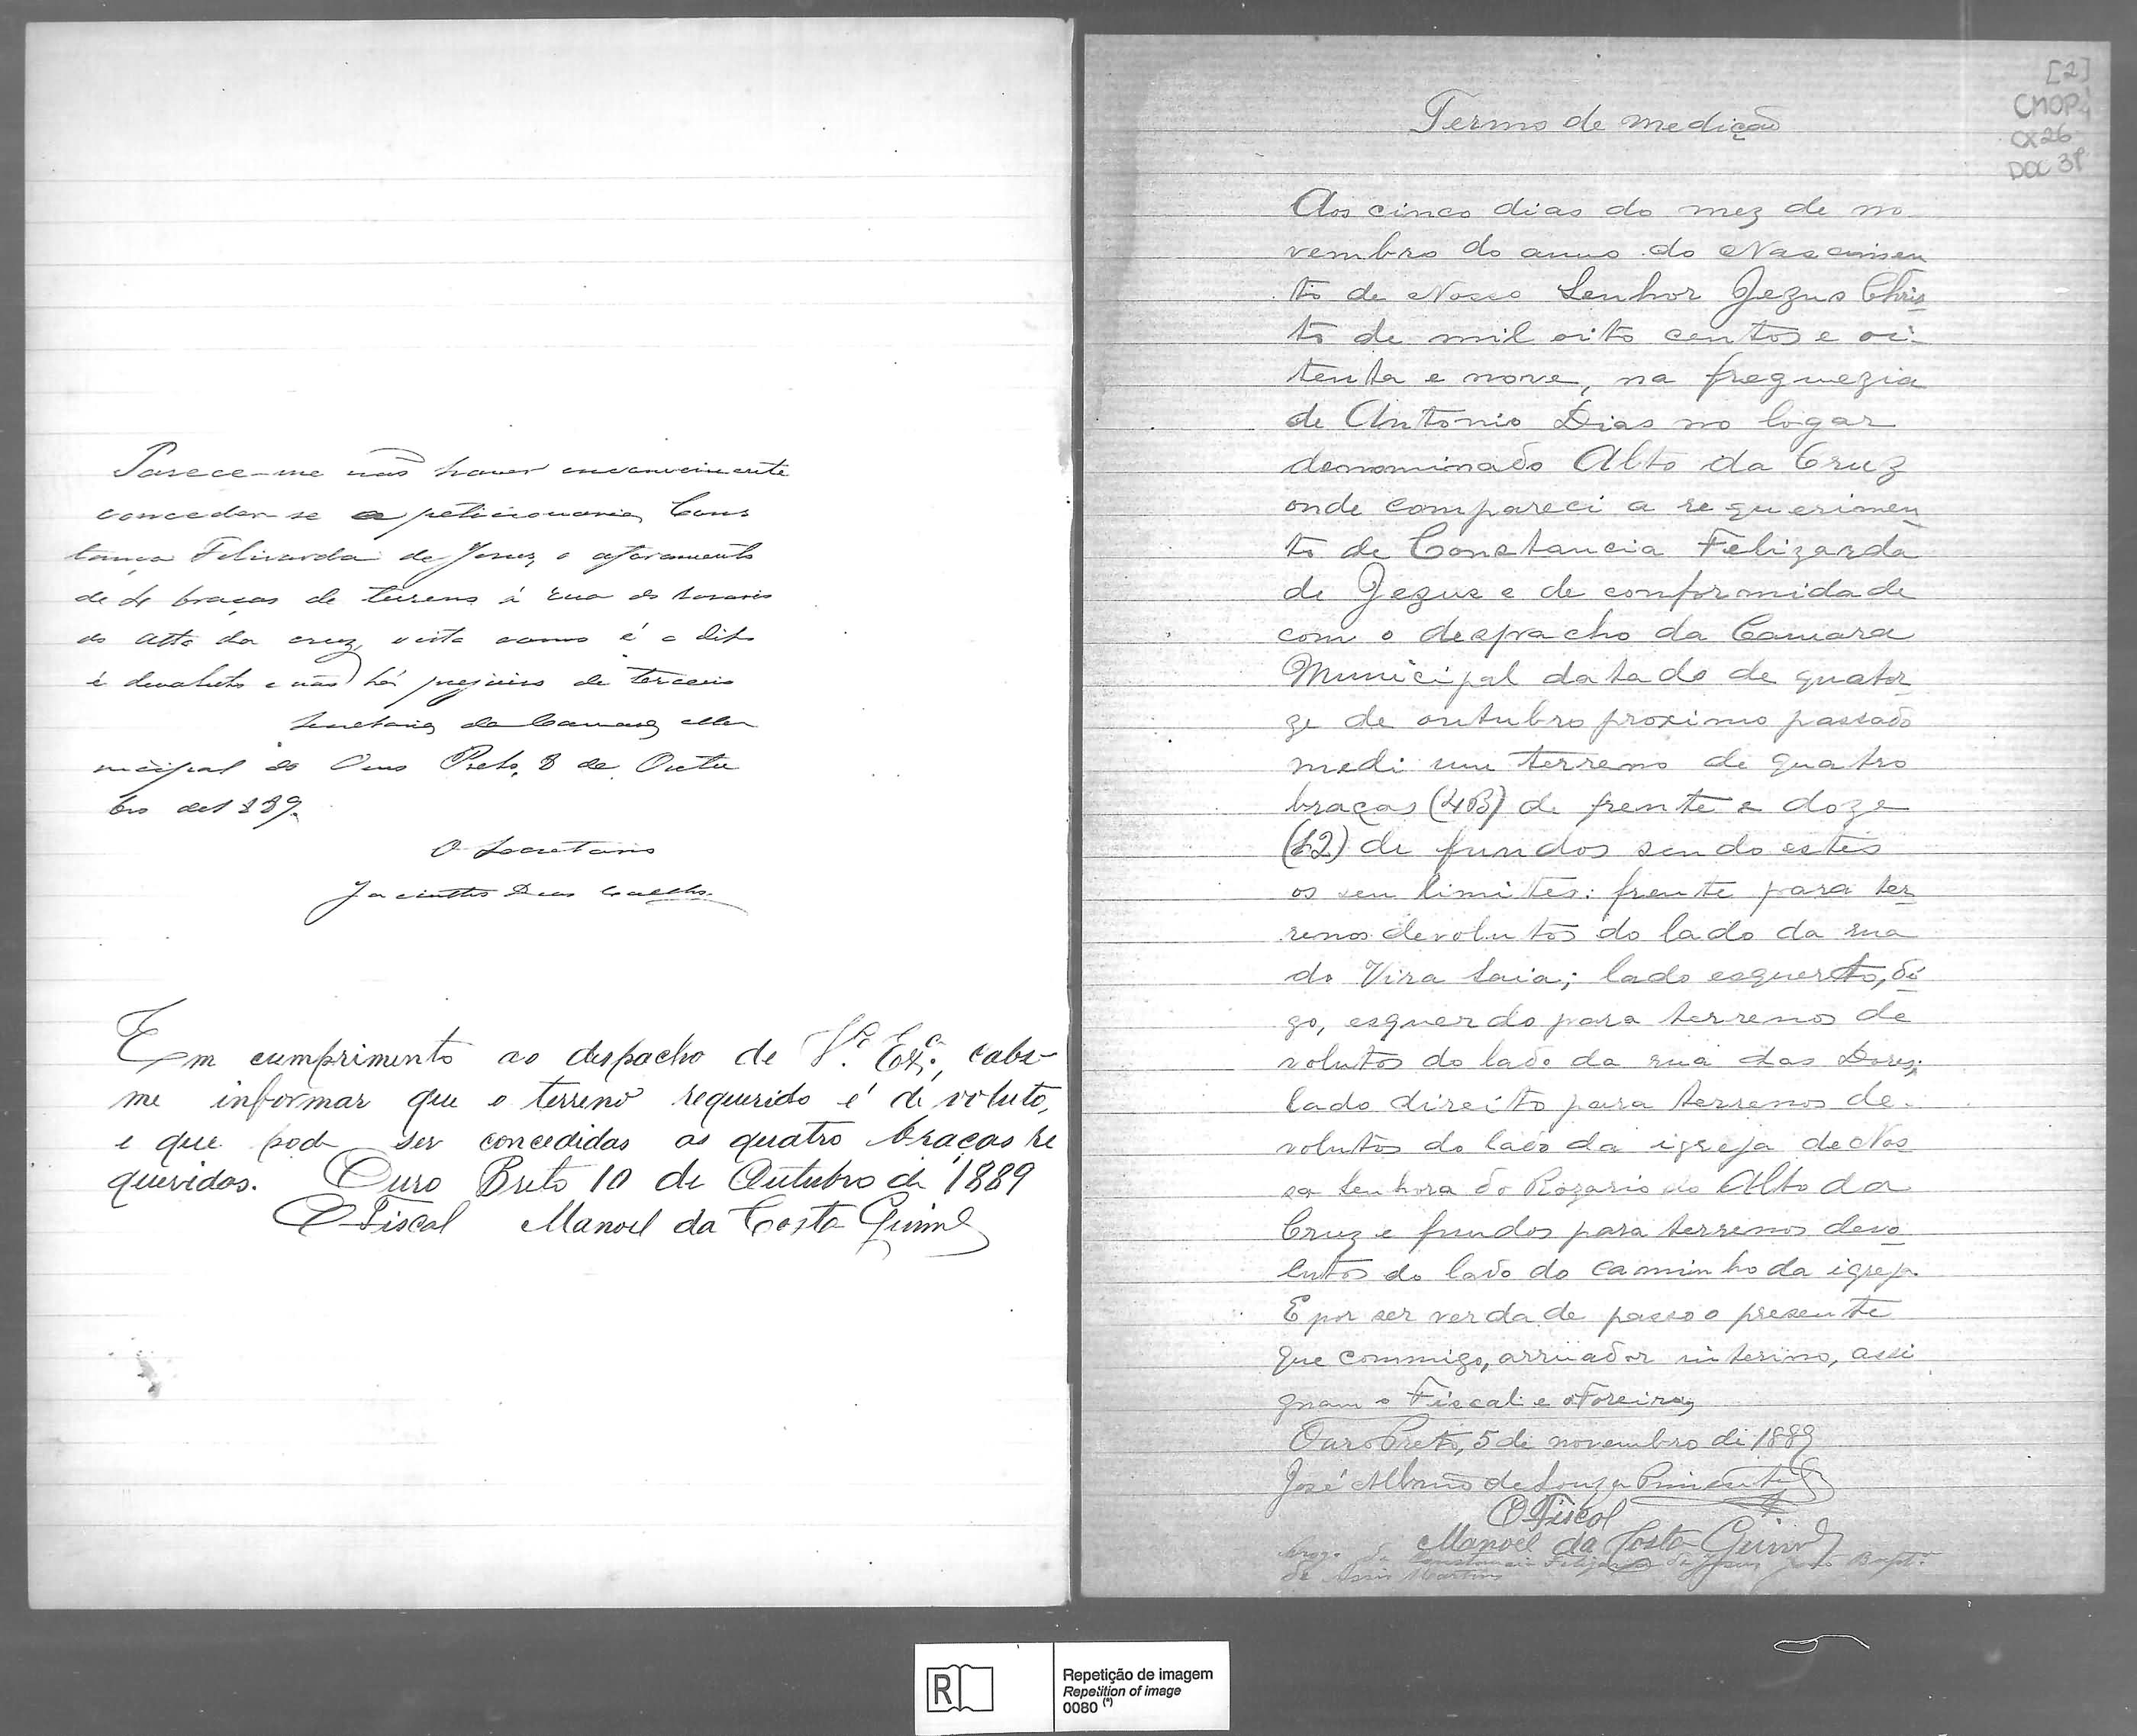 Parece-me não haver inconveniente
conceder-se a peticionaria Cons
tança Felizarda de Jesus, o aforamento
de 4 braças de terreno á rua do Rosario
do Alto da Cruz, visto como é o dito
é devoluto e não há prejuizo de terceiro
Secretaria da Camara Mu
nicipal do Ouro Preto, 8 de Outu
bro de 1889.
O Secretario
Jacintho Dias
Em cumprimento ao despacho de Vª Exª, cabe-
me informar que o terreno requerido é de voluto,
e que pode ser concedidas as quatro braças re
queridas. Ouro Preto 10 de Outubro de 1889
O Fiscal Manoel da Costa
[2]
CMOP
CX 26
DOC
Termo de medição
Aos cinco dias do mez de no
vembro do anno do Nascimen
to de Nosso Senhor Jezus Chris
to de mil oito centos e oi-
tenta e nove, na freguezia
de Antonio Dias no logar
denominado Alto da Cruz
onde compareci a requerimen
to de Constancia Felizarda
de Jezus e de conformidade
com o despacho da Camara
Municipal datado de quator
ze de outubro proximo passado
medi um terreno de quatro
braças (4B) de frente e doze
(12) de fundos sendo estes
os seu limites: frente para ter
renos devolutos do lado da rua
do Vira Saia; lado esquerto, di
go, esquerdo para terrenos de
volutos do lado da rua das Dores;
lado direito para terrenos de-
volutos do lado da igreja de Nos
sa Senhora do Rozario do Alto da
Cruz e fundos para terrenos devo
lutos do lado do caminho da igreja.
E por ser verdade passo o presente
que commigo, arruador interino, assi
gnam o Fiscal e o Foreiro,
Ouro Preto, 5 de novembro de 1889
José Albano de Souza Pimentel
O Fiscal
Manoel da Costa
Arogo de Constancia Felizarda de Jesus Bapt.ª
de Assis Martins
R
Repetição de imagem
Repetition of image
0080 (*)